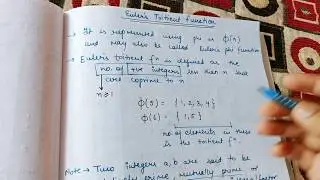 Euler's Totient function
→ It is represented using phi as ϕ(n)
and may also be called Euler's phi function
→ Euler's totient fn is defined as the
no. of +ve integers less than n that
are coprime to n
n≥1
ϕ(5) = {1, 2, 3, 4}
ϕ(6) = {1, 5}
no. of elements in these
is the totient fn.
Note → Two integers a, b are said to be
prime, mutually prime or